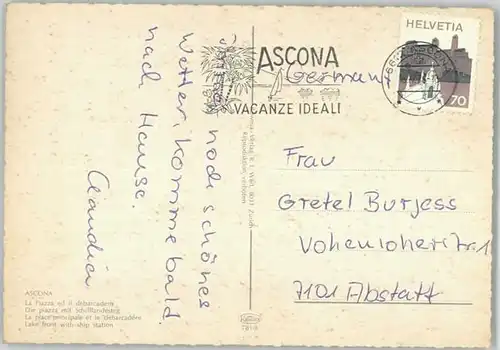 HELVETIA
70
ASCONA
VACANZE IDEALI
Germany
noch schönes
Wetter, komme bald
nach Hause.
Claudia
Frau
Gretel Burjess
Hohenloherstr. 1
7101 Abstatt
ASCONA
La Piazza ed il debarcadero
Die piazza mit Schifflandesteg
La place principale et le débarcadère
Lake front with ship station